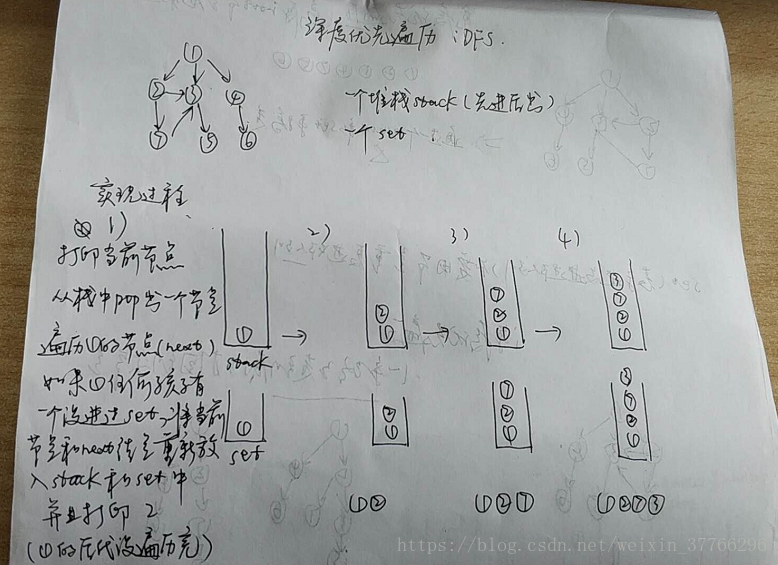 深度优先遍历：DFS.
①
② ③ ④
⑦ ⑤ ⑥
一个堆栈stack(先进后出)
一个 set
实现过程
1) 2) 3) 4)
打印当前节点
从栈中pop出一个节点
遍历①的节点(next)
如果①任何孩子有
一个没进过set,将当前
节点和next结点重新放
入stack和set中
并且打印 2
(①的后代没遍历完)
①
stack
②
①
⑦
②
①
③
⑦
②
①
①
set
②
①
⑦
②
①
③
⑦
②
①
①② ①②⑦ ①②⑦③
https://blog.csdn.net/weixin_37766296